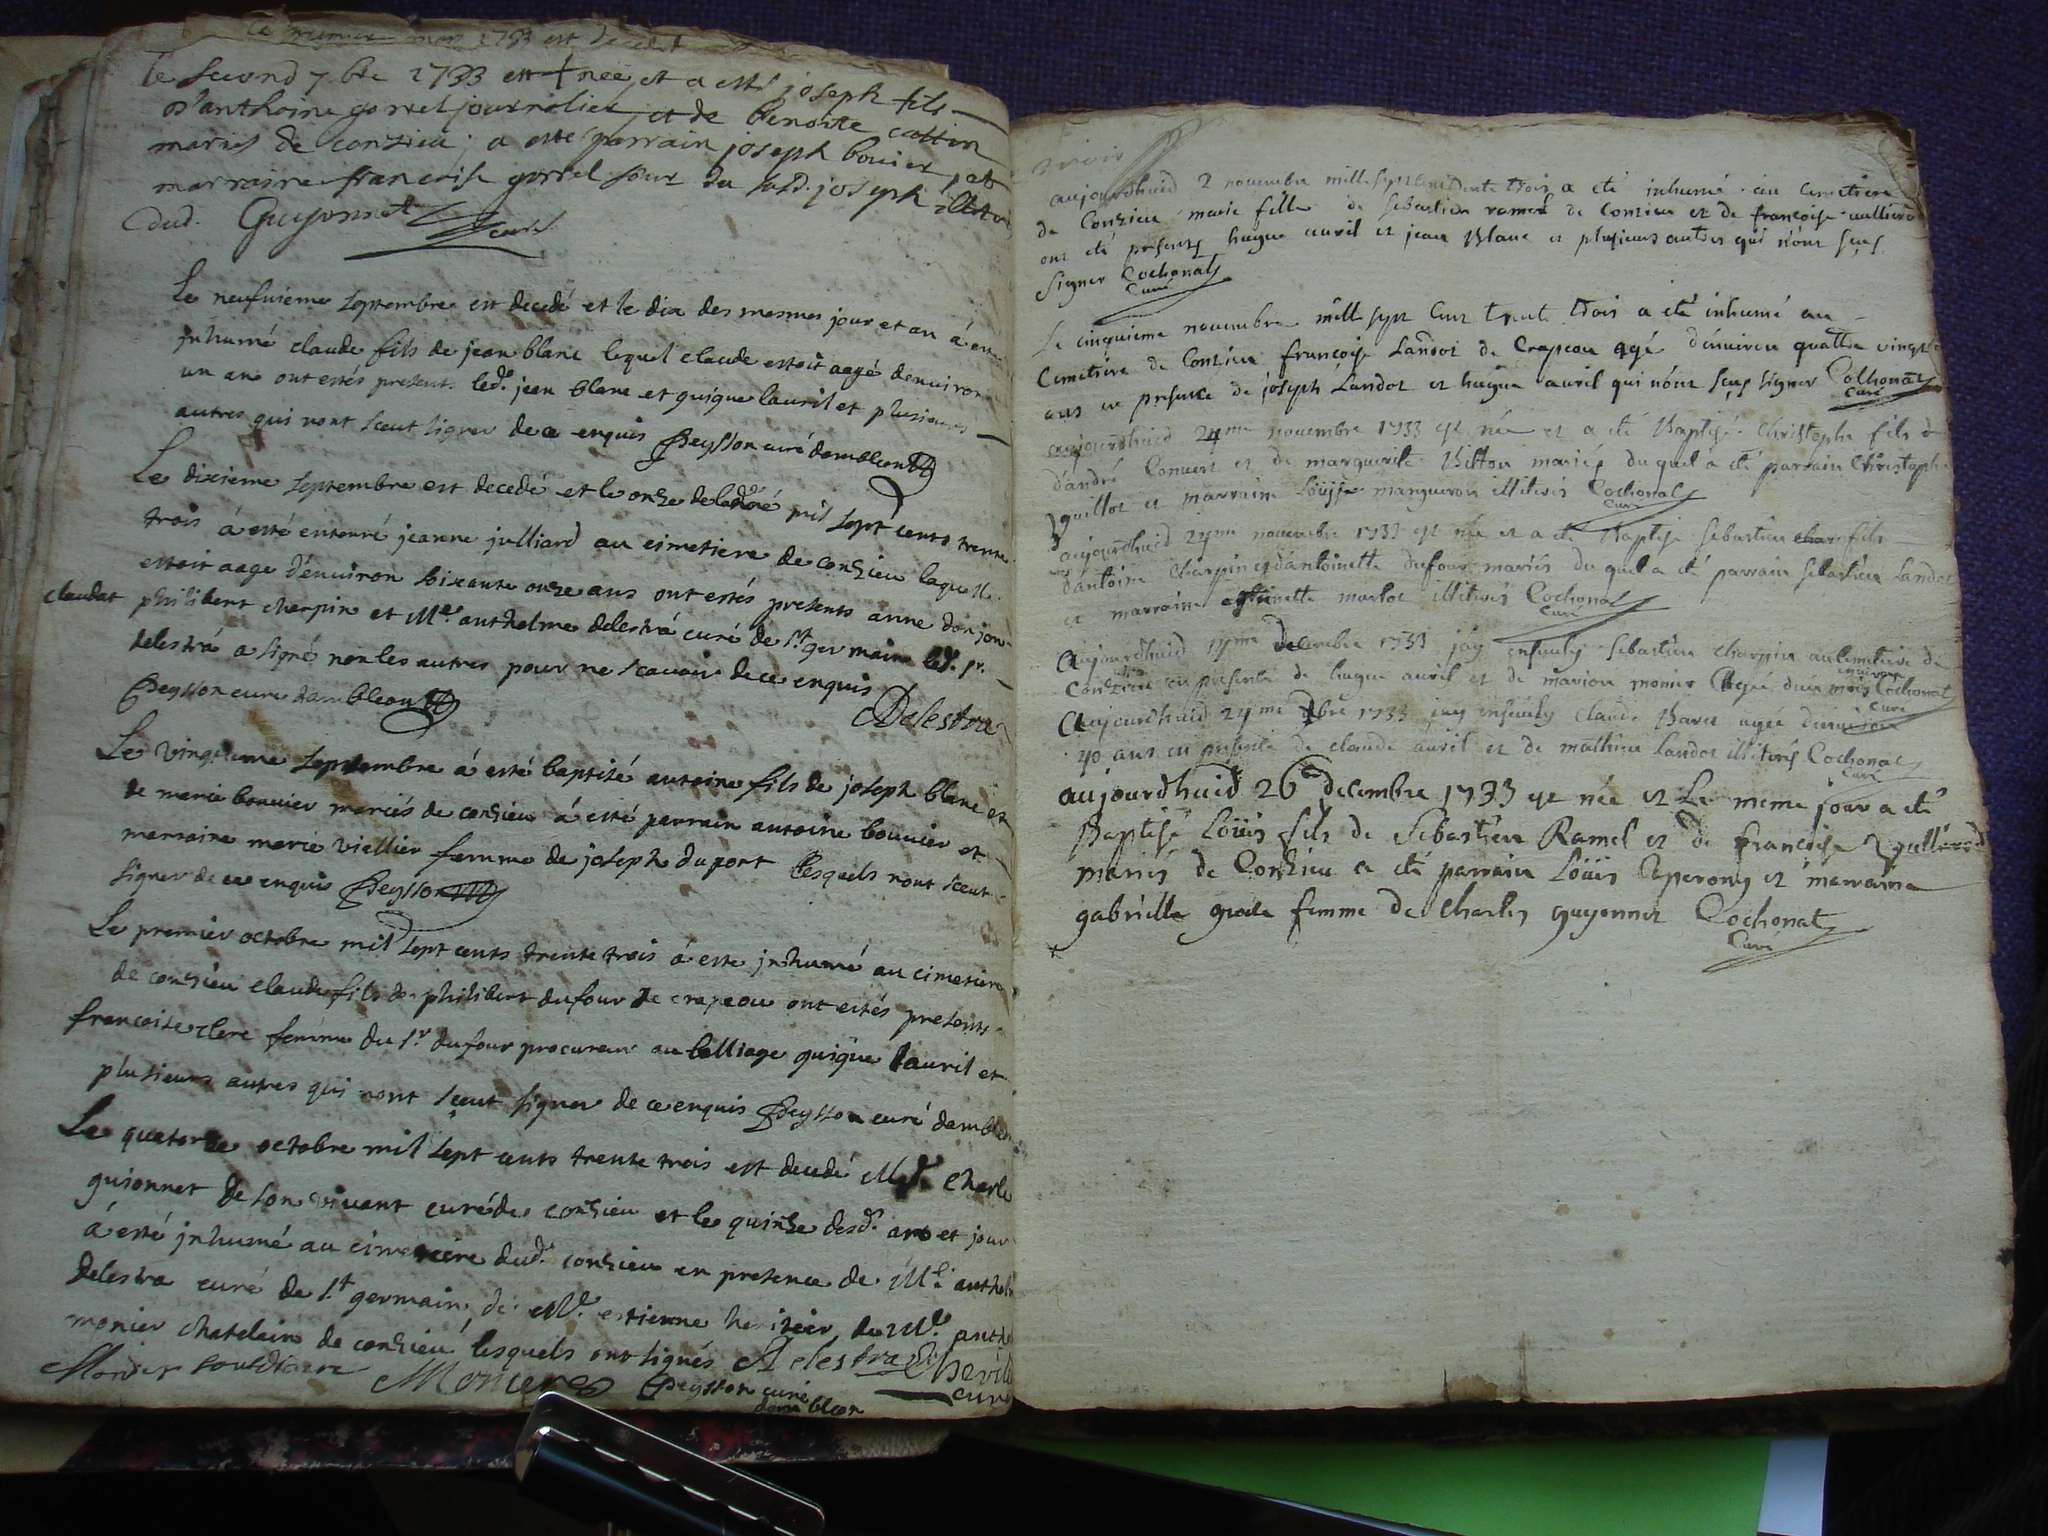 Ce premier mars 1733 est decedé
le second 7bre 1733 est née et a esté joseph fils
d'anthoine gorrel journalier et de benoite cottin
mariés de conzieu; a esté parrain joseph bouier et
marraine françoise gorrel sœur du susd. joseph
Guyonnet curé
Le neufuieme septembre est decedé et le dix des mesmes jour et an á esté
jnhumé claude fils de jean blanc lequel claude estoit aagé denuiron
un an ont estés present. led. jean blanc et guigue lauril et plusieurs
autres qui nont sceut signer de ce enquis Peysson curé dambleon
Le dixieme septembre est decedé et le onze mil sept cents trente
trois á esté enterré jeanne julliard au cimetiere de conzieu laquelle
estoit aage d'enuiron soixante onze ans ont estés presents anne donjon
claudat philibert charpin et Me. anthelme delestrá curé de st. germain led. sr.
delestrá a signé non les autres pour ne scauoir de ce enquis
Peysson curé dambleon Delestra
Le vingtieme septembre á esté baptisé antoine fils de joseph blanc et
de marie bouuier mariés de conzieu á esté parrain antoine bouuier et
marraine marie viellier femme de joseph dupont lesquels nont sceut
signer de ce enquis Peysson
Le premier octobre mil sept cents trente trois á esté jnhumé au cimetiere
de conzieu claude fils de philibert dufour de crapeou ont estés presents
francoise clerc femme du sr. dufour procureur au balliage guigue lauril et
plusieurs autres qui nont sceut signer de ce enquis Peysson curé dambleon
Le quatorze octobre mil sept cents trente trois est decedé Me. Charle
guionnet de son viuant curé de conzieu et le quinze desd. an et jour
á esté jnhumé au cimetiere dud. conzieu en presence de Me. anthel
delestra curé de st. germain, de Me. estienne heritier, de Me. anthe
monier chatelain de conzieu lesquels ont signés Delestra
Monier Peysson curé curé
dambleon
aujourdhuid 2 novembre mille sept cent trente trois a eté inhumé au cimetiere
de Conzieu marie fille de sebastien ramel de conzieu et de françoise vullierod
ont eté presents hugue auril et jean Blanc et plusieurs autres qui n'ont sçus
signer Cochonat
Curé
Le cinquieme novembre mill sept cent trente trois a eté inhumé au
Cimetiere de Conzieu françoise Landoz de Crapeou agé d'enuiron quattre vingts
ans en presence de joseph Landoz et hugue auril qui n'ont sçus signer Cochonat
Curé
aujourdhuid 24me novembre 1733 est née et a eté Baptisé Christophe fils de
d'andré Conuert et de marguerite Billion mariés du quel a eté parrain Christophe
guillot et marraine Loüise margueron illiterés Cochonat
Curé
aujourdhuid 29me novembre 1733 est née et a eté Baptisé sebastien fils
d'antoine Charpin et d'antoinette dufour mariés du quel a eté parrain sebastien Landoz
et marraine marloz illiterés Cochonat
Curé
Aujourdhuid 17me decembre 1733 jay enseuely sebastien Charpin au cimetiere de
Conzieu en presence de hugue auril et de marion monier agé d'un mois Cochonat
Curé
Aujourdhuid 24me Xbre 1733 jay enseuely Claude Baret agée d'enuiron
40 ans en presence de claude auril et de mathieu Landoz illiterés Cochonat
Curé
aujourdhuid 26e decembre 1733 est née et Le meme jour a eté
Baptisé Loüis fils de Sebastien Ramel et de françoise Vullierod
mariés de Conzieu a eté parrain Loüis et marraine
gabrielle femme de Charles guyonnet Cochonat
Curé